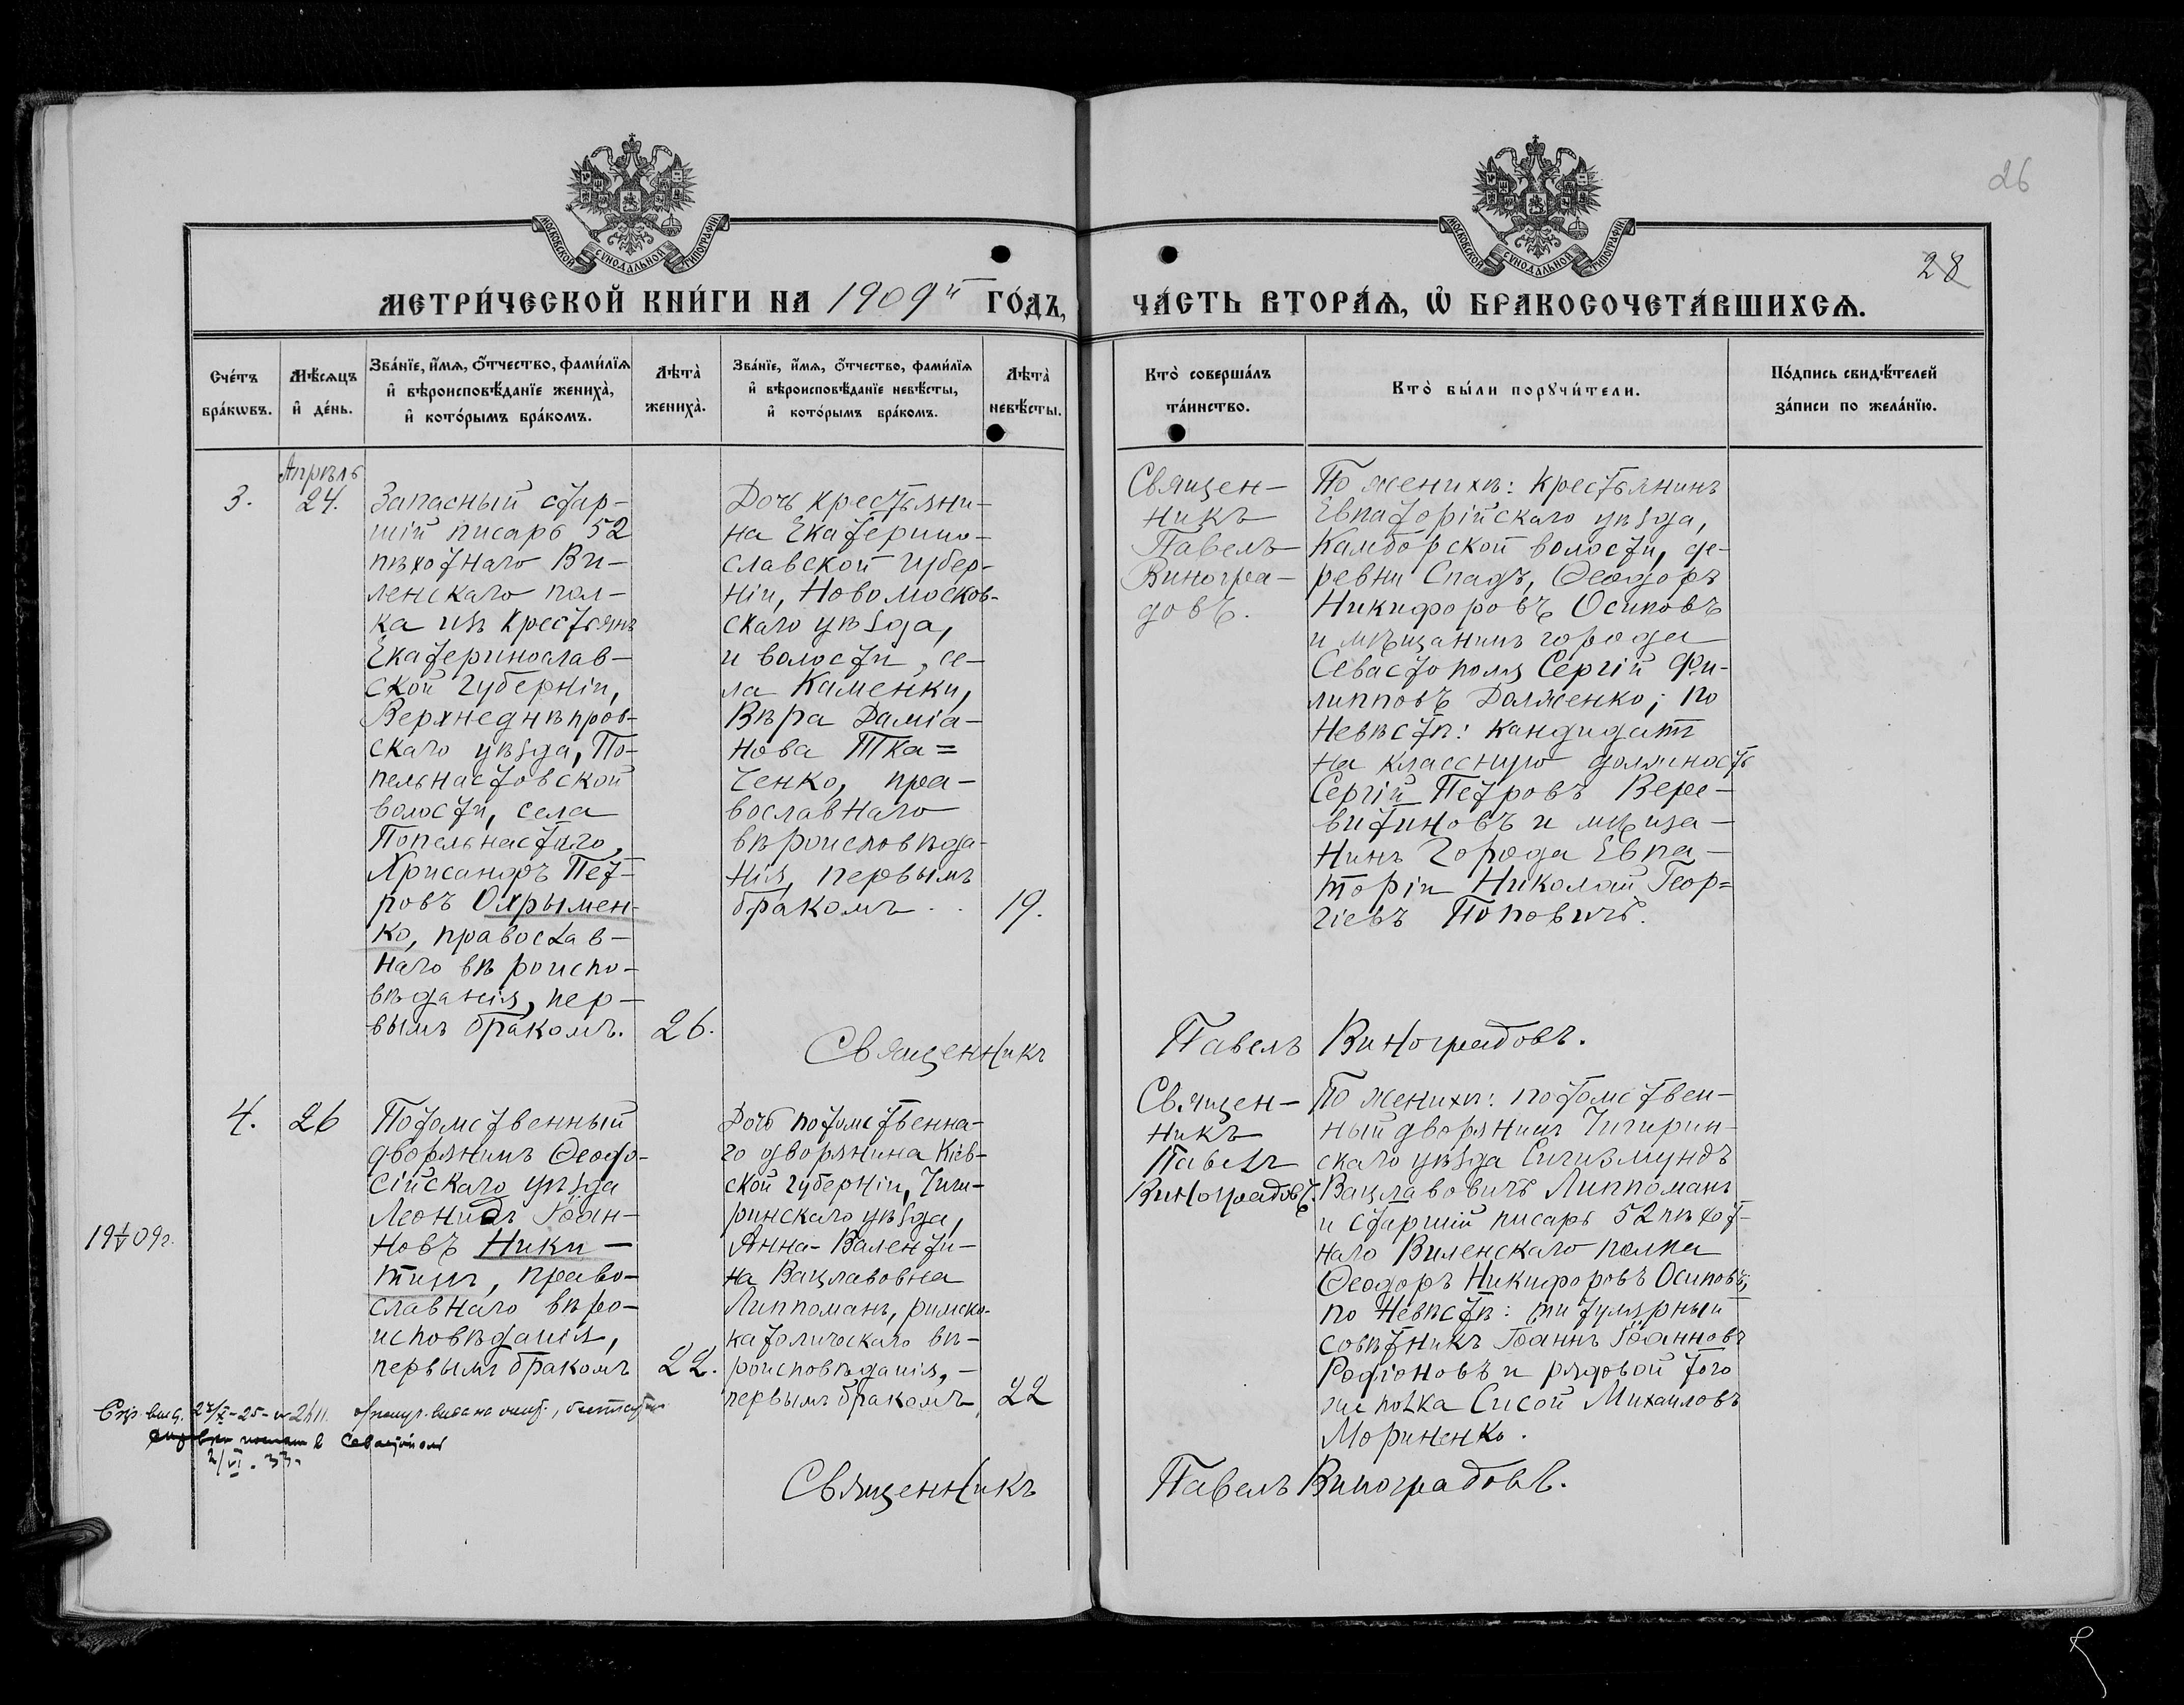 26
28
МОСКОВСКОЙ СѴНОДАЛЬНОЙ ТИПОГРАФІИ
МОСКОВСКОЙ СѴНОДАЛЬНОЙ ТИПОГРАФІИ
МЕТРИ́ЧЕСКОЙ КНИ́ГИ НА 1909й ГО́ДЪ,
ЧА́СТЬ ВТОРА́Ѧ, Ѡ҆ БРАКОСОЧЕТА́ВШИХСѦ.
Сче́тъ бра́кѡвъ.
Мѣ́сѧцъ и҆ де́нь.
Зва́нїе, и҆́мѧ, ѻ҆́тчество, фами́лїѧ и҆ вѣроисповѣ́данїе жениха̀, и҆ кото́рымъ бра́комъ.
Лѣ́та̀ жениха̀.
Зва́нїе, и҆́мѧ, ѻ҆́тчество, фами́лїѧ и҆ вѣроисповѣ́данїе невѣ́сты, и҆ кото́рымъ бра́комъ.
Лѣ́та̀ невѣ́сты.
Кто̀ соверша́лъ та́инство.
Кто̀ бы́ли порꙋчи́тели.
По́дпись свидѣ́телей за́писи по жела́нїю.
3.
Апрѣль
24.
Запасный стар-
шій писарь 52
пѣхотнаго Ви-
ленскаго пол-
ка изъ крестьянъ
Екатеринослав-
ской губерніи,
Верхнеднѣпров-
скаго уѣзда, По-
пельнастовской
волости, села
Попельнастаго,
Хрисанфъ Пет-
ровъ Охрымен-
ко, православ-
наго вѣроиспо-
вѣданія, пер-
вымъ бракомъ.
26.
Дочь крестьяни-
на Екатерино-
славской губер-
ніи, Новомосков-
скаго уѣзда,
и волости, се-
ла Каменки,
Вѣра Даміа-
нова Тка=
ченко, пра-
вославнаго
вѣроисповѣда-
нія, первымъ
бракомъ
19.
Священ-
никъ
Павелъ
Виногра-
довъ.
По женихѣ: крестьянинъ
Евпаторійскаго уѣзда,
Камборской волости, де-
ревни Спадъ, Ѳеодоръ
Никифоровъ Осиповъ
и мѣщанинъ города
Севастополя Сергій Фи-
липповъ Долженко; по
Невѣстѣ: кандидатъ
на классную должность
Сергій Петровъ Вере-
витиновъ и мѣща-
нинъ города Евпа-
торіи Николай Геор=
гіевъ Поповичъ.
Священникъ Павелъ Виноградовъ.
4.
26
Потомственный
дворянинъ Ѳеодо-
сійскаго уѣзда
Леонидъ Іоан-
новъ Ники-
тинъ, право-
славнаго вѣро-
исповѣданія,
первымъ бракомъ
22.
Дочь потомственна-
го дворянина Кіев-
ской губерніи, Чиги-
ринскаго уѣзда,
Анна-Валенти-
на Вацлавовна
Липпоманъ, римско-
католическаго вѣ-
роисповѣданія, -
первымъ бракомъ
22
Священ-
никъ
Павелъ
Виноградовъ.
По женихѣ: потомствен-
ный дворянинъ Чигирин-
скаго уѣзда Сигизмундъ
Вацлавовичъ Липпоманъ
и старшій писарь 52 пѣхот-
наго Виленскаго полка
Ѳеодоръ Никифоровъ Осиповъ;
по Невѣстѣ: титулярный
совѣтникъ Іоаннъ Іоанновъ
Родіоновъ и рядовой того
же полка Сисой Михаиловъ
Мориненко.
19V09г.
27/X-25-
Севастополь
2/VI.33.
Священникъ Павелъ Виноградовъ.